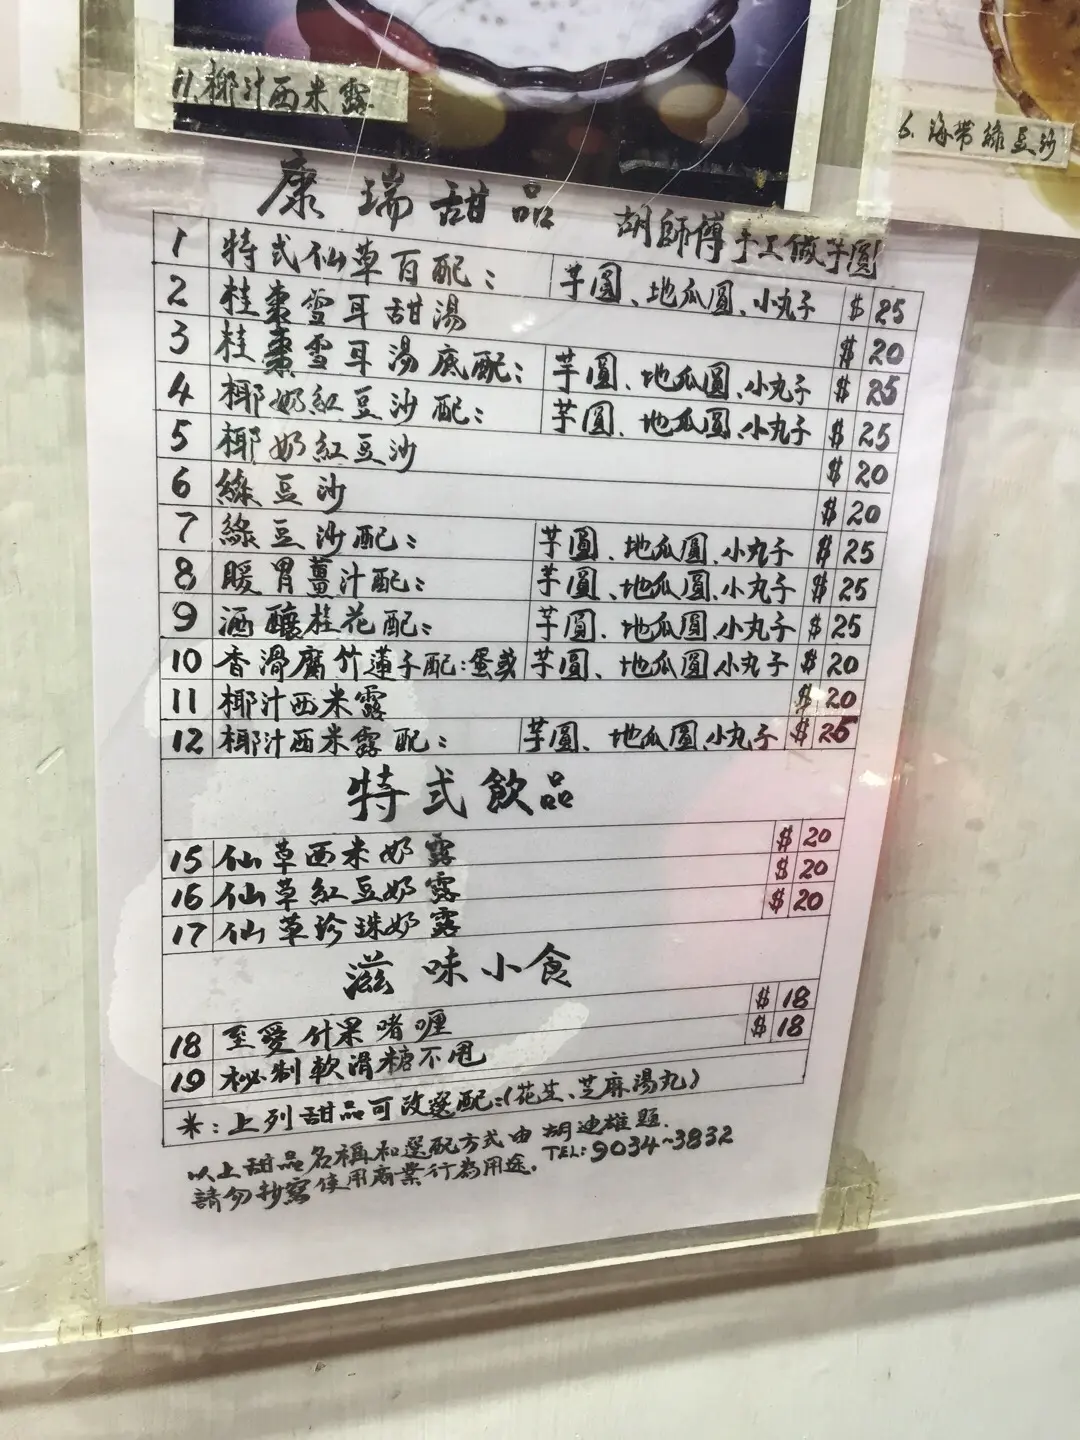 11.椰汁西米露
6.海帶綠豆沙
康瑞甜品 胡師傅手工做芋圓
1 特式仙草百配: 芋圓、地瓜圓、小丸子 $ 25
2 桂棗雪耳甜湯 $ 20
3 桂棗雪耳湯底配: 芋圓、地瓜圓、小丸子 $ 25
4 椰奶紅豆沙配: 芋圓、地瓜圓、小丸子 $ 25
5 椰奶紅豆沙 $ 20
6 綠豆沙 $ 20
7 綠豆沙配: 芋圓、地瓜圓、小丸子 $ 25
8 暖胃薑汁配: 芋圓、地瓜圓、小丸子 $ 25
9 酒釀桂花配: 芋圓、地瓜圓、小丸子 $ 25
10 香滑腐竹蓮子配:蛋或 芋圓、地瓜圓、小丸子 $ 20
11 椰汁西米露 $ 20
12 椰汁西米露配: 芋圓、地瓜圓、小丸子 $ 25
特式飲品
15 仙草西米奶露 $ 20
16 仙草紅豆奶露 $ 20
17 仙草珍珠奶露 $ 20
滋味小食
18 至愛什果啫喱 $ 18
19 秘制軟滑糖不甩 $ 18
*:上列甜品可改選配:(花生、芝麻湯丸)
以上甜品名稱和選配方式由胡迪雄題.
請勿抄寫使用商業行為用途. TEL:9034~3832